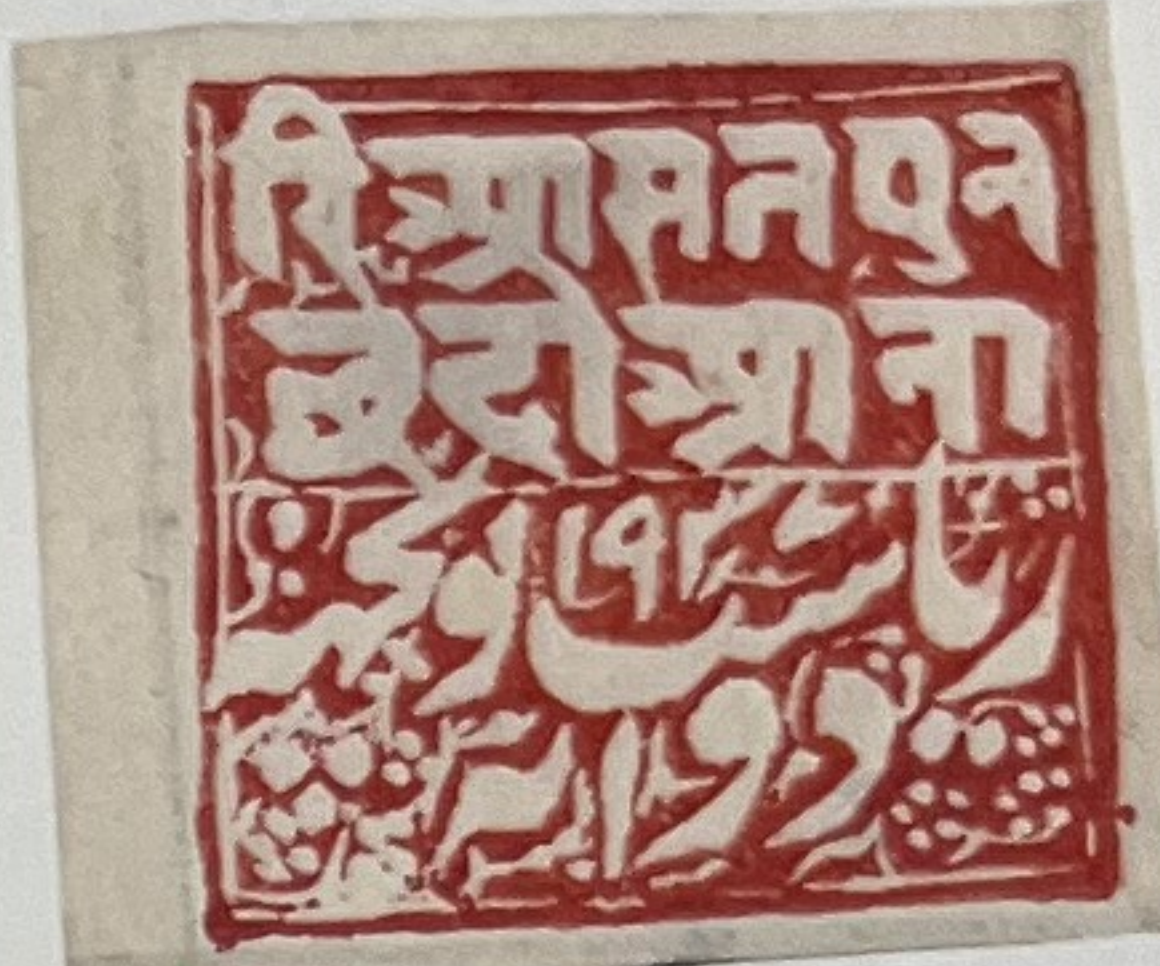 रिआसत पुन
छ दो आना
ریاست پونچھ
دو آنہ